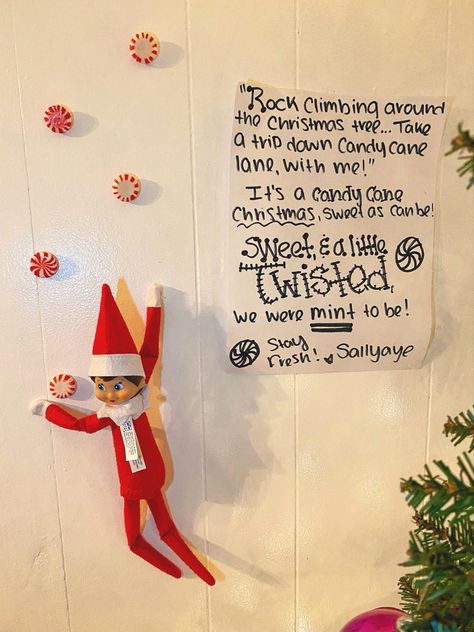 "Rock climbing around
the Christmas tree... Take
a trip down Candy cane
lane, with me!"
It's a candy cane
Christmas, sweet as can be!
Sweet, & a little
Twisted,
we were mint to be!
Stay
Fresh! Sallyaye